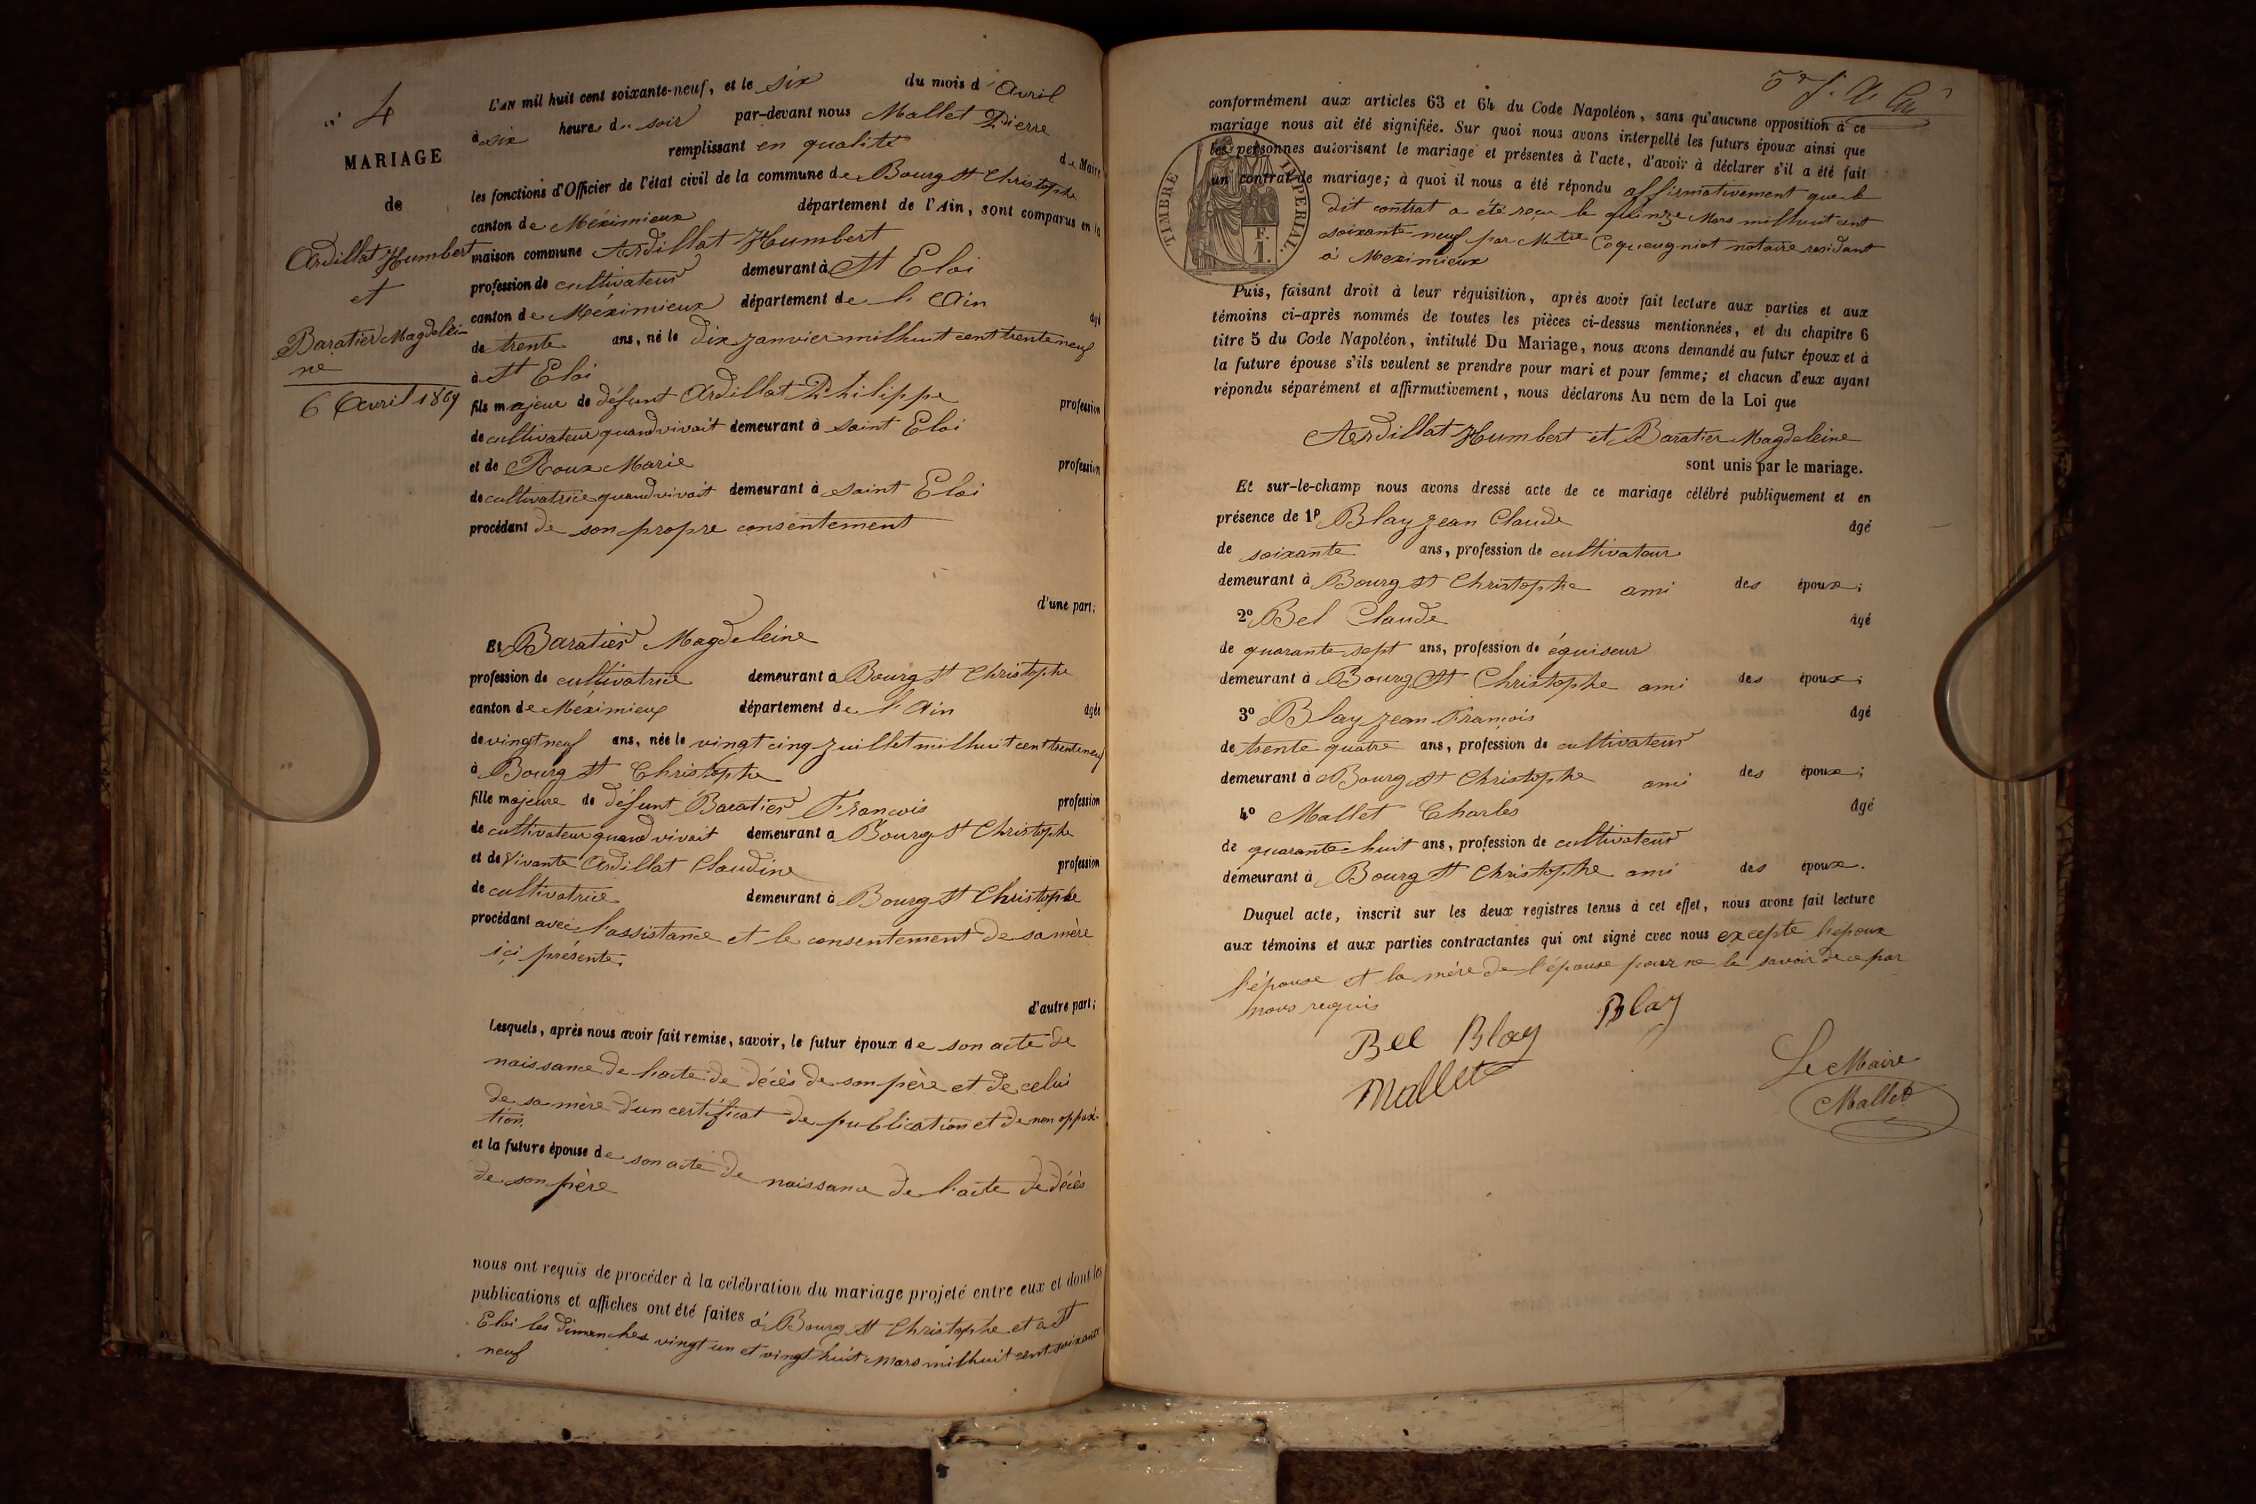 n° 4
MARIAGE
de
Ardillat Humbert
et
Baratier Magdelei
ne
6 Avril 1869
L'AN mil huit cent soixante-neuf, et le six du mois d'Avril
à six heures du soir par-devant nous Mallet Pierre
remplissant en qualité de Maire
les fonctions d'Officier de l'état civil de la commune de Bourg St Christophe
canton de Méximieux département de l'Ain, sont comparus en la
maison commune Ardillat Humbert
profession de cultivateur demeurant à St Eloi
canton de Méximieux département de l'Ain âgé
de trente ans, né le dix janvier mil huit cent trente neuf
à St Eloi
fils majeur de défunt Ardillat Philippe profession
de cultivateur quand vivait demeurant à saint Eloi
et de Roux Marie profession
de cultivatrice quand vivait demeurant à saint Eloi
procédant de son propre consentement
d'une part;
Et Baratier Magdeleine
profession de cultivatrice demeurant à Bourg St Christophe
canton de Méximieux département de l'Ain âgée
de vingt neuf ans, née le vingt cinq juillet mil huit cent trente neuf
à Bourg St Christophe
fille majeure de défunt Baratier Francois profession
de cultivateur quand vivait demeurant à Bourg St Christophe
et de Vivante Ardillat Claudine profession
de cultivatrice demeurant à Bourg St Christophe
procédant avec l'assistance et le consentement de sa mère
ici présente.
d'autre part;
Lesquels, après nous avoir fait remise, savoir, le futur époux de son acte de
naissance de l'acte de décès de son père et de celui
de sa mère d'un certificat de publication et de non opposi-
tion.
et la future épouse de son acte de naissance de l'acte de décès
de son père
nous ont requis de procéder à la célébration du mariage projeté entre eux et dont les
publications et affiches ont été faites à Bourg St Christophe et à St
Eloi les dimanches vingt un et vingt huit mars mil huit cent soixante
neuf
conformément aux articles 63 et 64 du Code Napoléon, sans qu'aucune opposition à ce
mariage nous ait été signifiée. Sur quoi nous avons interpellé les futurs époux ainsi que
les personnes autorisant le mariage et présentes à l'acte, d'avoir à déclarer s'il a été fait
un contrat de mariage; à quoi il nous a été répondu affirmativement que le
dit contrat a été reçu le quinze Mars mil huit cent
soixante neuf par Mtre Coqueugniot notaire residant
à Meximieux
TIMBRE IMPERIAL.
F.
1.
Puis, faisant droit à leur réquisition, après avoir fait lecture aux parties et aux
témoins ci-après nommés de toutes les pièces ci-dessus mentionnées, et du chapitre 6
titre 5 du Code Napoléon, intitulé Du Mariage, nous avons demandé au futur époux et à
la future épouse s'ils veulent se prendre pour mari et pour femme; et chacun d'eux ayant
répondu séparément et affirmativement, nous déclarons Au nom de la Loi que
Ardillat Humbert et Baratier Magdeleine
sont unis par le mariage.
Et sur-le-champ nous avons dressé acte de ce mariage célébré publiquement et en
présence de 1° Blay Jean Claude âgé
de soixante ans, profession de cultivateur
demeurant à Bourg St Christophe ami des époux;
2° Bel Claude âgé
de quarante sept ans, profession de éguiseur
demeurant à Bourg St Christophe ami des époux;
3° Blay Jean François âgé
de trente quatre ans, profession de cultivateur
demeurant à Bourg St Christophe ami des époux;
4° Mallet Charles âgé
de quarante huit ans, profession de cultivateur
demeurant à Bourg St Christophe ami des époux.
Duquel acte, inscrit sur les deux registres tenus à cet effet, nous avons fait lecture
aux témoins et aux parties contractantes qui ont signé avec nous excepte l'époux
l'épouse et la mère de l'épouse pour ne le savoir de ce par
nous requis
Bel Blay Blay
Mallet
Le Maire
Mallet